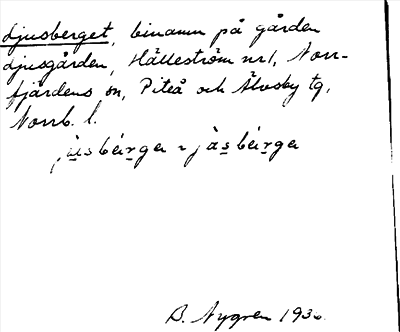 Ljusberget, binamn på gården
Ljusgården, Hälleström nr 1, Norr-
fjärdens sn, Piteå och Älvsby tg,
Norrb. l.
jùsbérga ~ jàsbérga
B. Nygren 1936.